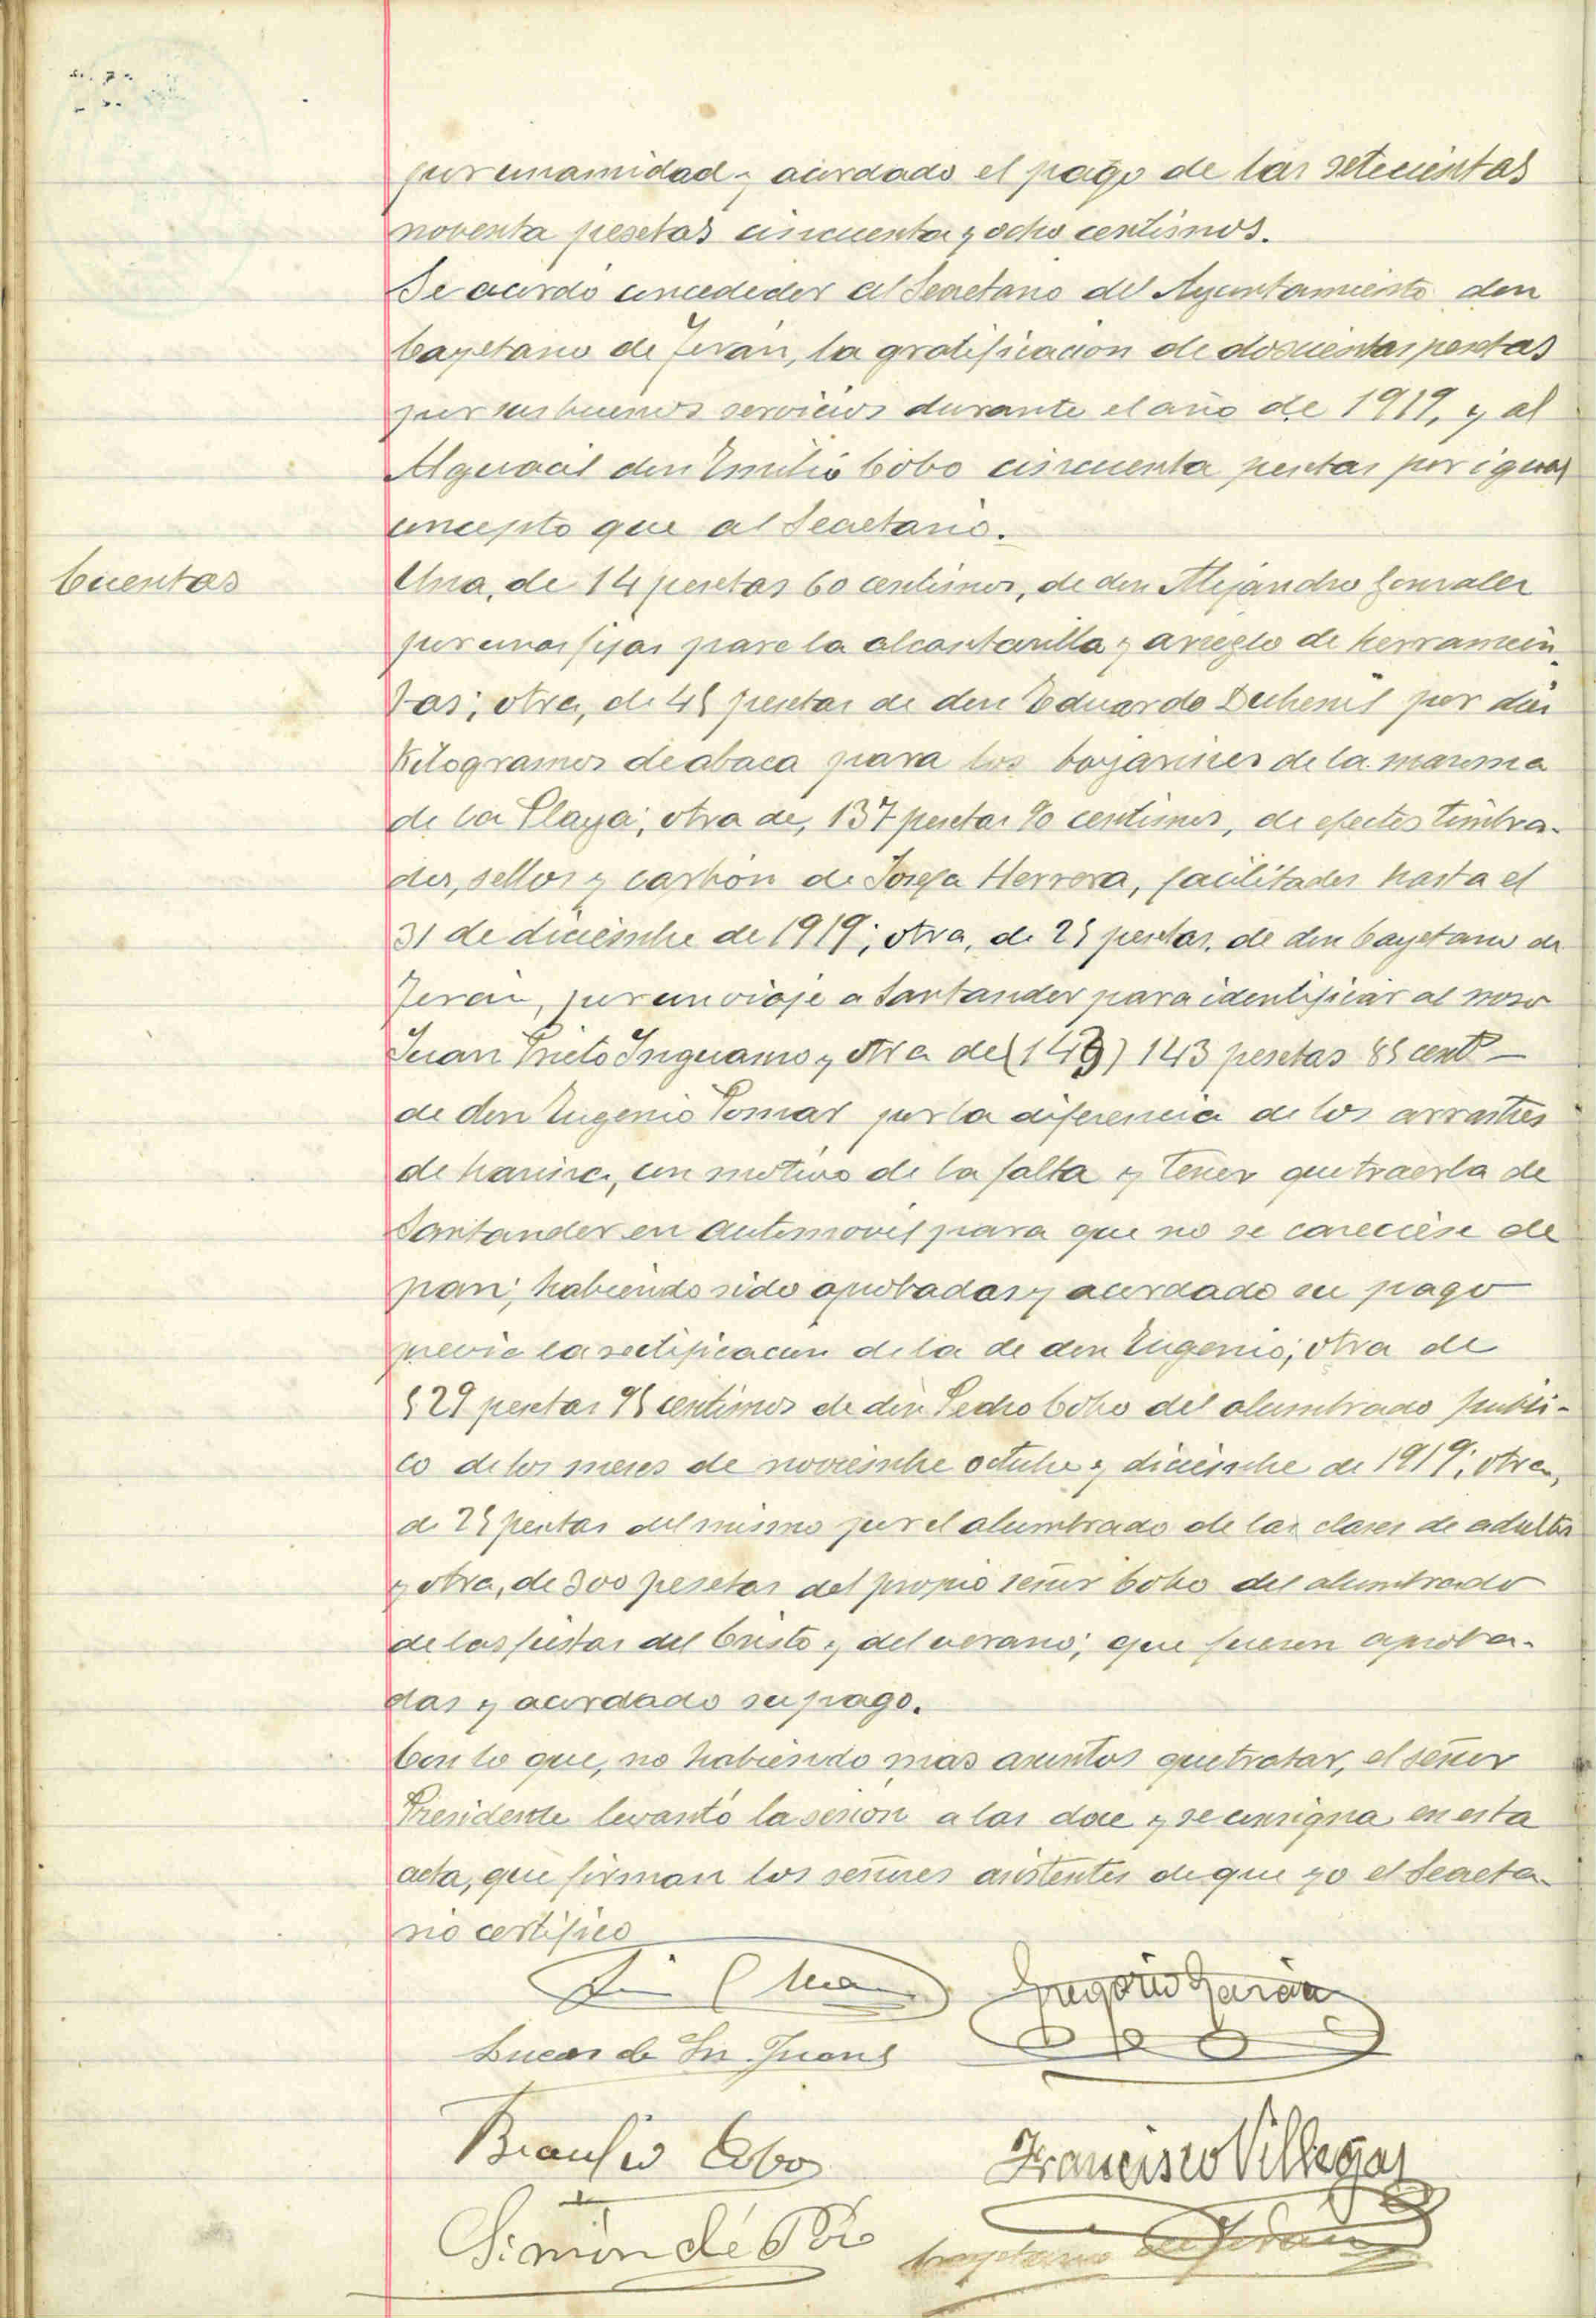 por unamidad y acordado el pago de las setecientas
noventa pesetas cincuenta y ocho centimos.
Se acordó concededer al Secretario del Ayuntamiento don
Cayetano de Terán, la gratificacion de doscientas pesetas
por sus buenos servicios durante el año de 1919, y al
Alguacil don Emilio Cobo cincuenta pesetas por igual
concepto que al Secretario.
Cuentas
Una, de 14 pesetas 60 centimos, de don Alejandro Gonzalez
por unas fijas para la alcantarilla y arreglo de herramien-
tas; otra, de 45 pesetas de don Eduardo por diez
Kilogramos de abaca para los de la maroma
de la Playa; otra de, 137 pesetas 90 centimos, de efectos timbra-
dos, sellos y carbón de Josefa Herrera, facilitados hasta el
31 de diciembre de 1919; otra, de 25 pesetas, de don Cayetano de
Terán, por un viaje a Santander para identificar al mozo
Juan Prieto y otra de (149) 143 pesetas 85 cents
de don Eugenio Pomar por la diferencia de los arrastres
de harina, con motivo de la falta y tener que traerla de
Santander en automovil para que no se careciese de
pan; habiendo sido aprobadas y acordado su pago
previa la rectificacion de la de don Eugenio; otra de
529 pesetas 95 centimos de don Pedro Cobo del alumbrado publi-
co de los meses de noviembre octubre y diciembre de 1919; otra,
de 25 pesetas del mismo por el alumbrado de las clases de adultos
y otra, de 300 pesetas del propio señor Cobo del alumbrado
de las fiestas del Cristo y del verano; que fueron aproba-
das y acordado su pago.
Con lo que, no habiendo mas asuntos que tratar, el señor
Presidente levantó la sesión a las doce y se consigna en esta
acta, que firman los señores asistentes de que yo el Secreta-
rio certifico
Gregorio García
Lucas de Sn. Juan
Braulio Cobo
Francisco Villegas
Simón de
Cayetano de Terán